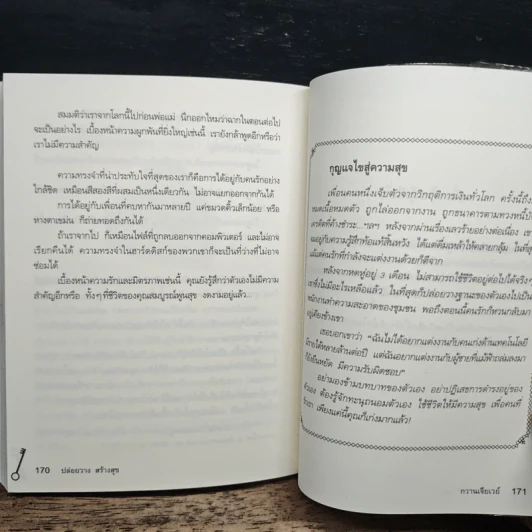 สมมติว่าเราจากโลกนี้ไปก่อนพ่อแม่ นึกออกไหมว่าฉากในตอนต่อไป
จะเป็นอย่างไร เบื้องหน้าความผูกพันที่ยิ่งใหญ่เช่นนี้ เรายังกล้าพูดอีกหรือว่า
เราไม่มีความสำคัญ
ความทรงจำที่น่าประทับใจที่สุดของเราก็คือการได้อยู่กับคนรักอย่าง
ใกล้ชิด เหมือนสีสองสีที่ผสมเป็นหนึ่งเดียวกัน ไม่อาจแยกออกจากกันได้
การได้อยู่กับเพื่อนที่คบหากันมาหลายปี แค่ขมวดคิ้วเล็กน้อย หรือ
หางตาเขม่น ก็ถ่ายทอดถึงกันได้
ถ้าเราจากไป ก็เหมือนไฟล์ที่ถูกลบออกจากคอมพิวเตอร์ และไม่อาจ
เรียกคืนได้ ความทรงจำในฮาร์ดดิสก์ของพวกเขาก็จะเป็นที่ว่างที่ไม่อาจ
ซ่อมได้
เบื้องหน้าความรักและมิตรภาพเช่นนี้ คุณยังรู้สึกว่าตัวเองไม่มีความ
สำคัญอีกหรือ ทั้งๆ ที่ชีวิตของคุณสมบูรณ์พูนสุข งดงามอยู่แล้ว
170 ปล่อยวาง สร้างสุข
กุญแจไขสู่ความสุข
เพื่อนคนหนึ่งเจ็บตัวจากวิกฤติการเงินทั่วโลก ครั้งนี้ถึง
หมดเนื้อหมดตัว ถูกไล่ออกจากงาน ถูกธนาคารตามทวงหนี้บัตร
เครดิตที่ค้างชำระ...ฯลฯ หลังจากผ่านเรื่องเลวร้ายอย่างต่อเนื่อง เขา
อยู่กับความรู้สึกท้อแท้สิ้นหวัง ได้แต่ดื่มเหล้าให้คลายกลุ้ม ในที่สุด
แม้แต่คนรักที่กำลังจะแต่งงานด้วยก็ตีจาก
หลังจากหดหู่อยู่ 3 เดือน ไม่สามารถใช้ชีวิตอยู่ต่อไปได้จริงๆ
ซึ่งไม่มีอะไรเหลือแล้ว ในที่สุดก็ปล่อยวางฐานะของตัวเองไปเป็น
พนักงานทำความสะอาดของชุมชน พอถึงตอนนี้คนรักก็หวนกลับมา
อยู่เคียงข้างเขา
เธอบอกเขาว่า "ฉันไม่ได้อยากแต่งงานกับคนเก่งด้านเทคโนโลยี
มีรายได้หลายล้านต่อปี แต่ฉันอยากแต่งงานกับผู้ชายที่แม้ฟ้าถล่มลงมา
ก็ยังยืนหยัด มีความรับผิดชอบ"
อย่ามองข้ามบทบาทของตัวเอง อย่าปฏิเสธการดำรงอยู่ของ
ตัวเอง ต้องรู้จักทะนุถนอมตัวเอง ใช้ชีวิตให้มีความสุข เพื่อคนที่
รักเรา เพียงแค่นี้คุณก็เก่งมากแล้ว!
กวานเจียเวย์ 171